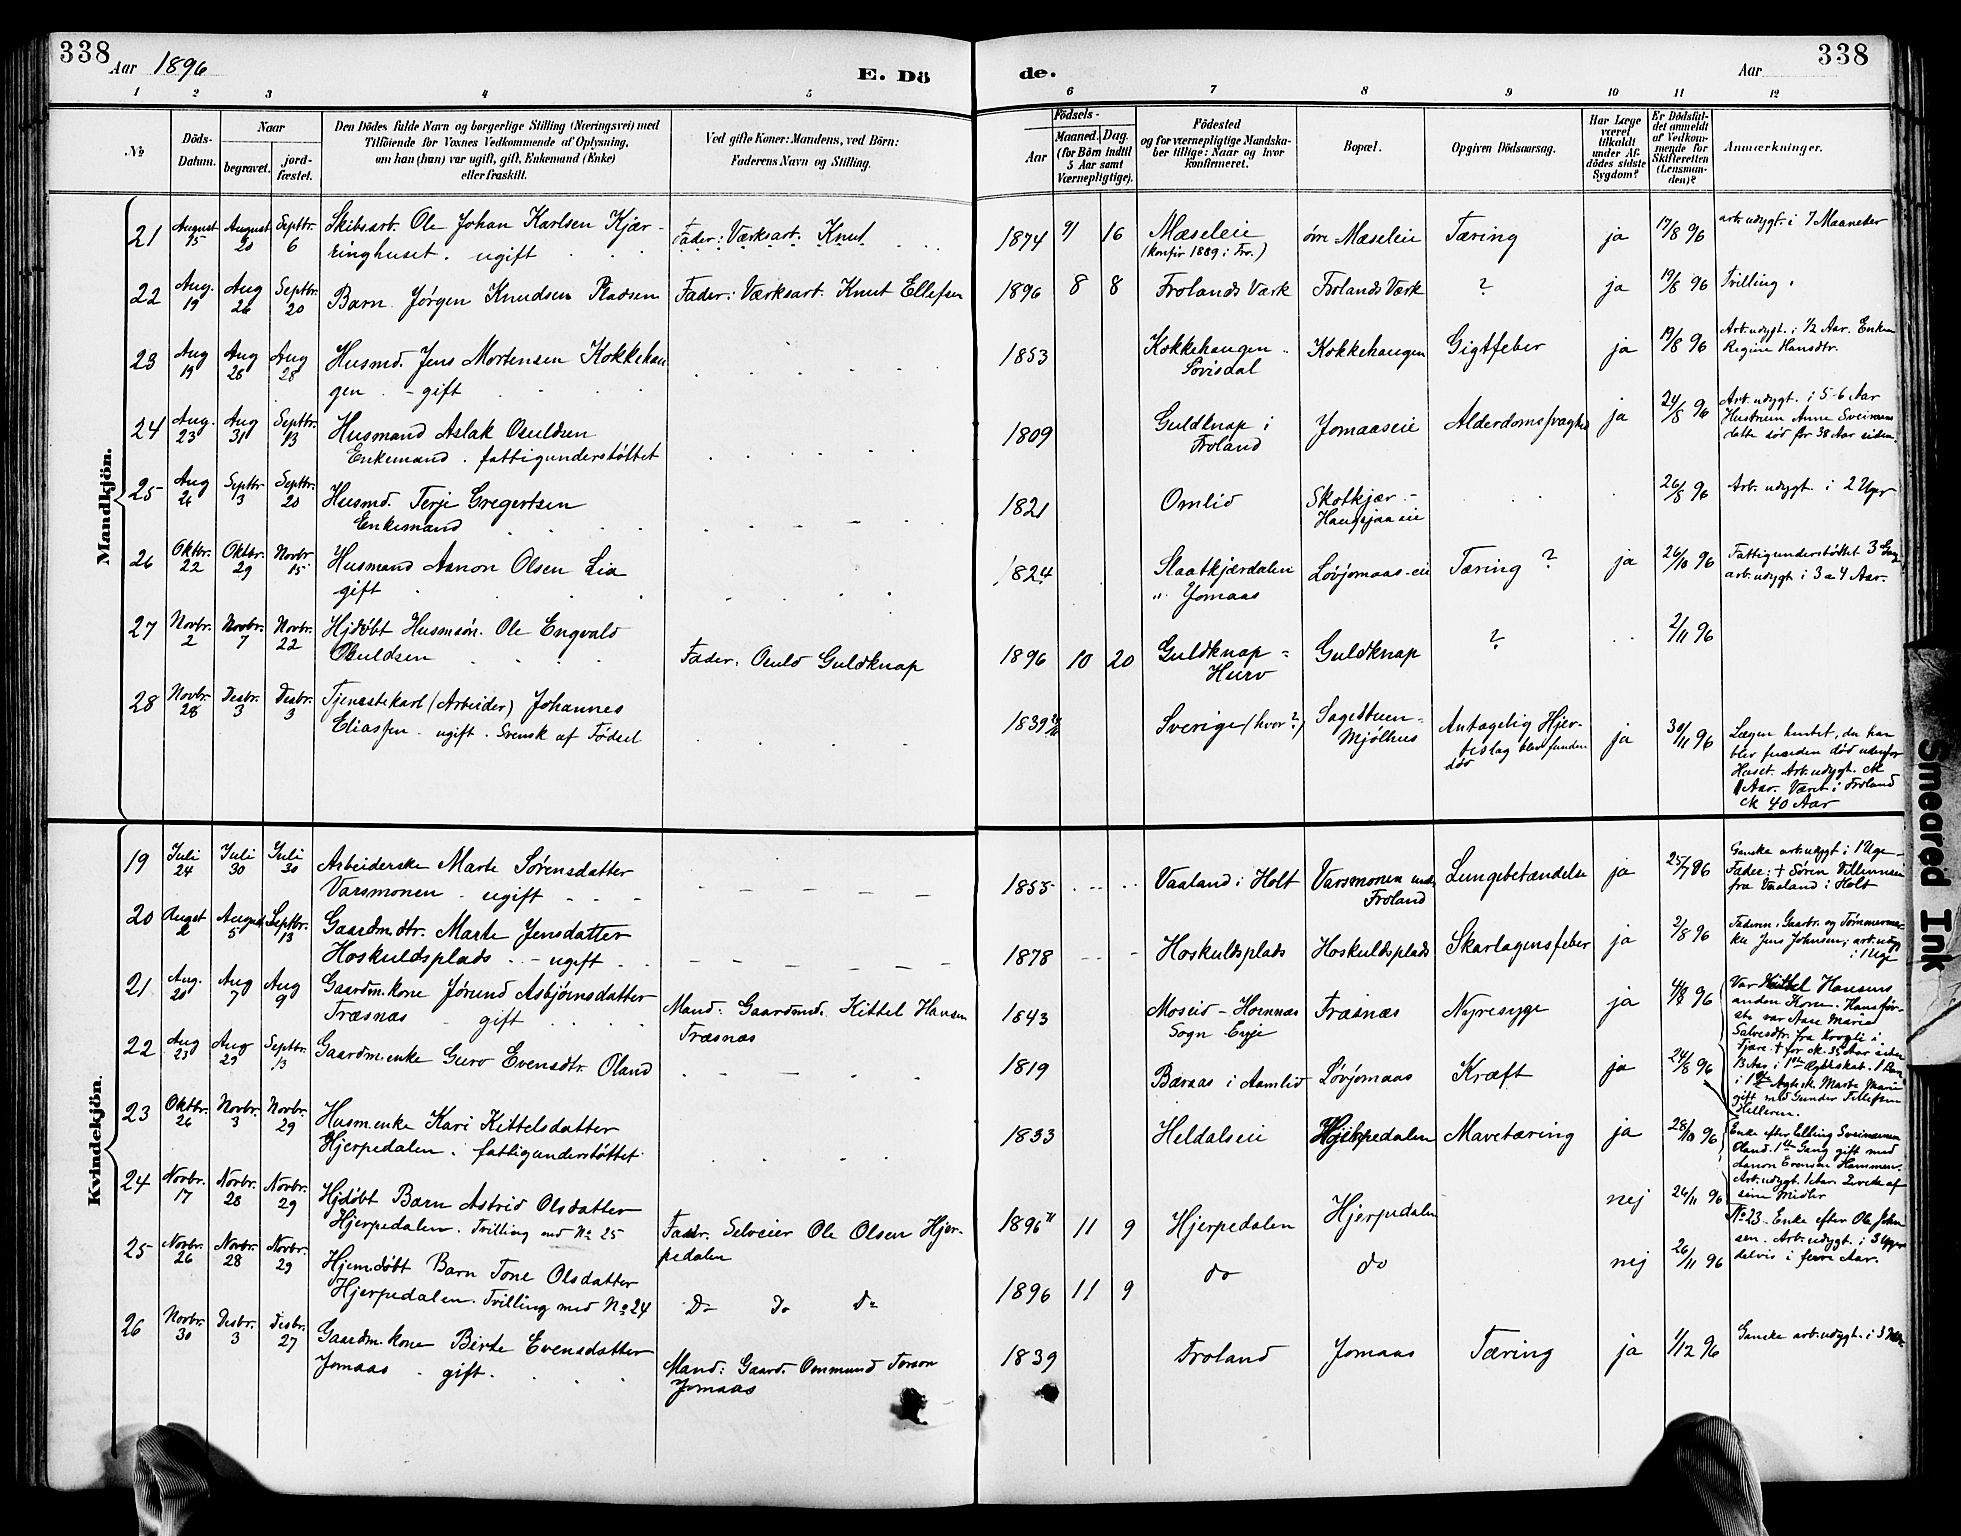 338
Aar 1896
E. Dö
de.
Aar
338
1 2 3 4 5 6 7 8 9 10 11 12
No
Döds-
Datum.
Naar
begravet.
jord-
fæstet.
Den Dödes fulde Navn og borgerlige Stilling (Næringsvei) med
Tilföiende for Voxnes Vedkommende af Oplysning,
om han (hun) var ugift, gift, Enkemand (Enke)
eller fraskilt.
Ved gifte Koner: Mandens, ved Börn:
Faderens Navn og Stilling.
Födsels-
Aar
Maaned. Dag.
(for Börn indtil
5 Aar samt
Værnepligtige).
Födested
og for værnepligtige Mandska-
ber tillige: Naar og hvor
konfirmeret.
Bopæl.
Opgiven Dödsaarsag.
Har Læge
været
tilkaldt
under Af-
dödes sidste
Sygdom?
Er Dödsfal-
det anmeldt
af Vedkom-
mende for
Skifteretten
(Lensman-
den)?
Anmærkninger.
Mandkjön.
21 August 15 August 20 Septbr. 6 Skibsarb. Ole Johan Karlsen Kjær-
ringhuset. ugift
Fader: Værksarb. Knut
1874 9 16 Mæseleie
(konfir 1889 i Fro.)
övre Mæseleie Tæring ja 17/8 96 arb. udygt. i 7 Maaneder
22 Aug. 19 Aug 26 Septbr. 20 Barn Jörgen Knudsen Pladsen Fader: Værksarb. Knut Ellefsen
1896 8 8 Frolands Værk Frolands Værk ? ja 19/8 96 Tvilling
23 Aug 19 Aug 26 Aug 28 Husmd. Jens Mortensen Kokkehau
gen - gift
1853 Kokkehaugen
Sövisdal
Kokkehaugen Gigtfeber ja 19/8 96 Arb. udygt. i 1/2 Aar. Enken
Regine Hansdtr.
24 Aug. 23 Aug 31 Septbr. 13 Husmand Aslak Osuldsen
Enkemand. fattigunderstöttet
1809 Guldknap i
Froland
Jomaaseie Alderdomssvaghed ja 24/8 96 Arb. udygt. i 5-6 Aar
Hustruen Anne Sveinens
datte död for 38 Aar siden.
25 Aug 26 Septbr 3 Septbr. 20 Husmd. Terje Gregertsen
Enkemand
1821 Omlid Skotkjær -
Haugsjaaeie
26/8 96 Arb. udygt. i 2 Uger
26 Oktbr. 22 Oktbr. 29 Novbr. 15 Husmand Aanon Olsen Lia
gift
1824 Slaatkjærdalen
" Jomaas
Lövjomaas-eie Tæring ? ja 26/10 96 Fattigunderstöttet 3 Gang
arb. udygt i 3 a 4 Aar.
27 Novbr. 2 Novbr. 7 Novbr. 22 Hjdöbt Husmsön. Ole Engvald
Osuldsen
Fader: Osuld Guldknap
1896 10 20 Guldknap =
Hurv
Guldknap ? 2/11 96
28 Novbr. 28 Desbr. 3 Desbr. 3 Tjenestekarl (Arbeider) Johannes
Eliassen. ugift. Svensk af Födsel
1839 Sverige (hvor?) Sagestuen =
Mjölhus
Antagelig Hjer-
teslag blev funden
död
ja 30/11 96 Lægen hentet, da han
blev funden död udenfor
Huset. Arb. udygt. ck
1 Aar. Været i Froland
ck 40 Aar
Kvindekjön.
19 Juli 24 Juli 30 Juli 30 Arbeiderske Marte Sörensdatter
Varsmonen. ugift
1855 Vaaland i Holt Varsmonen under
Froland
Lungebetændelse ja 25/7 96 Ganske arb. udygt i 1 Uge
Fader: + Sören Tellevnsen
fra Vaaland i Holt
20 August 2 August 5 Septbr. 13 Gaardm. dtr. Marte Jensdatter
Hoskuldsplads - ugift
1878 Hoskuldsplads Hoskuldsplads Skarlagensfeber ja 2/8 96 Faderen: Gaardbr. og Tömmermær-
ker Jens Johnsen; arb. udyg.
i 1 Uge
21 Aug. 20 Aug 7 Aug 9 Gaardm. kone Jörund Asbjörnsdatter
Træsnæs - gift
Mand: Gaardmd. Kittel Hansen
Træsnæs
1843 Moseid - Hornnæs
Sogn - Evje
Træsnæs Nyresyge ja 4/8 96 Var Kittel Hansens
anden Kone. Hans för-
ste var Aase Marie
Salvesdtr. fra Krogli i
Fjære + for ck. 35 Aar siden
1 Barn
i 1ste Ægtesk. Marte Marie
gift med Gunder Tellefsen
Helleren.
22 Aug 23 Aug 29 Septbr. 13 Gaardm. enke Guro Evensdtr. Oland
1819 Baraas i Aamlid Lövjomaas Kræft ja 24/8 96
Enke efter Elling Sveinsen
Oland. 1ste Gang gift med
Aanon Evensen Hammen.
Arb. udygt. 1 Aar. Levede af
sine Midler
23 Oktbr. 26 Novbr. 3 Novbr. 29 Husm. enke Kari Kittelsdatter
Hjerpedalen. fattigunderstöttet
1833 Heldalseie Hjerpedalen Mavetæring ja 28/10 96
No 23. Enke efter Ole John
sen. Arb. udygt. i 3 Uger
delvis i flere Aar.
24 Novbr. 17 Novbr. 28 Novbr. 29 Hjdöbt Barn Astrid Olsdatter
Hjerpedalen. Tvilling med No 25
Fader. Selveier Ole Olsen Hjer-
pedalen
1896 11 9 Hjerpedalen Hjerpedalen nej 26/11 96
25 Novbr. 26 Novbr. 28 Novbr. 29 Hjemdöbt Barn Tone Olsdatter
Hjerpedalen. Tvilling med No 24
Do Do Do
1896 11 9 do do nej 26/11 96
26 Novbr. 30 Desbr. 3 Desbr. 27 Gaardm. kone Birte Evensdatter
Jomaas - gift.
Mand: Gaard. Ommund Torson
Jomaas
1839 Froland Jomaas Tæring ja 1/12 96 Ganske arb. udygt. i 3
Smeared Ink